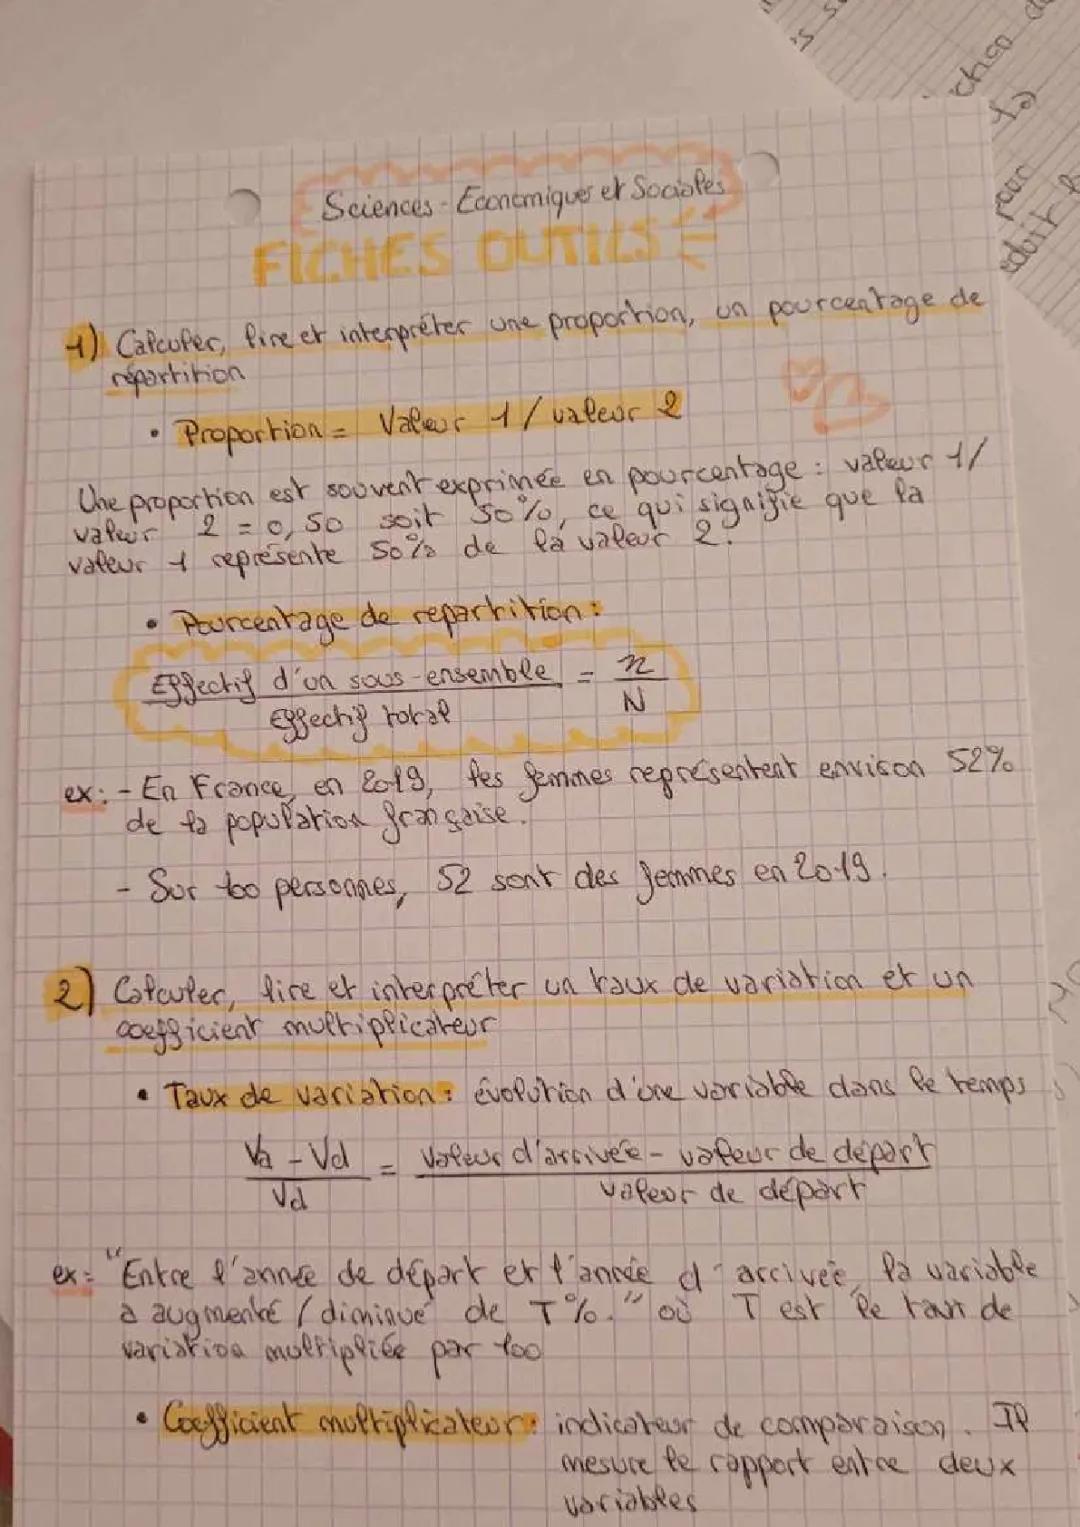 Sciences-Economiques et Sociales
FICHES OUTILS
1) Calculer, lire et interpréter une proportion, un pourcentage de
répartition
• Proportion = Valeur 1 / valeur 2
Une proportion est souvent exprimée en pourcentage : valeur 1/
valeur 2 = 0,50 soit 50%, ce qui signifie que la
valeur 1 représente 50% de la valeur 2.
• Pourcentage de repartition :
Effectif d'un sous-ensemble = n
Effectif total N
ex: - En France, en 2019, les femmes représentent environ 52%
de la population française.
- Sur 100 personnes, 52 sont des femmes en 2019.
2) Calculer, lire et interpréter un taux de variation et un
coefficient multiplicateur
• Taux de variation : évolution d'une variable dans le temps
Va - Vd = valeur d'arrivée - valeur de départ
Vd valeur de départ
ex: "Entre l'année de départ et l'année d'arrivée, la variable
a augmenté / diminué de T%." où T est le taux de
variation multipliée par 100
• Coefficient multiplicateur : indicateur de comparaison. Il
mesure le rapport entre deux
variables